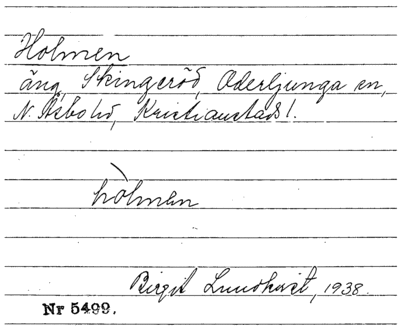 Holmen
äng, Skingeröd, Oderljunga sn,
N. Åsbo hd, Kristianstads l.
hòlmen
Birgit Lundkvist, 1938.
Nr 5499.